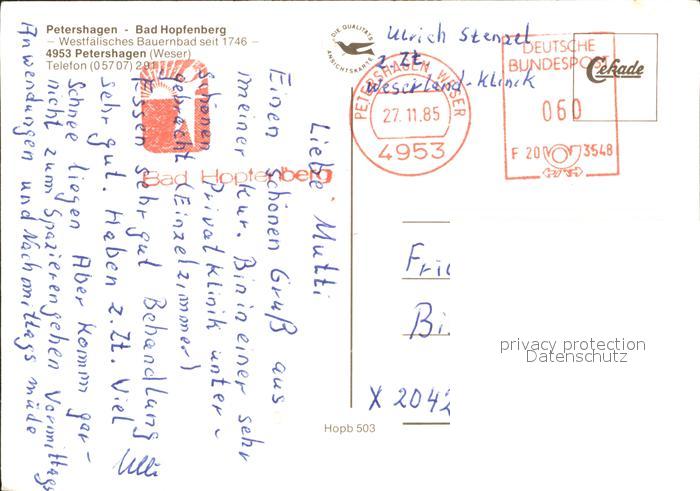 Petershagen - Bad Hopfenberg
– Westfälisches Bauernbad seit 1746 –
4953 Petershagen (Weser)
Telefon (05707) 291
DIE QUALITÄTS
ANSICHTSKARTE
Ulrich Stenzel
z. Zt.
Weserland-Klinik
PETERSHAGEN WESER
27.11.85
4953
DEUTSCHE
BUNDESPOST
060
F 20 3548
Cekade
Bad Hopfenberg
Liebe Mutti
Einen schönen Gruß aus
meiner Kur. Bin in einer sehr
schönen Privatklinik unter-
gebracht (Einzelzimmer)
Essen sehr gut Behandlung
sehr gut. Haben z. Zt. viel
Schnee liegen Aber komm gar-
nicht zum Spazierengehen Vormittags
Anwendungen und Nachmittags müde
Ulli
Bi
X 2042
Hopb 503
privacy protection
Datenschutz